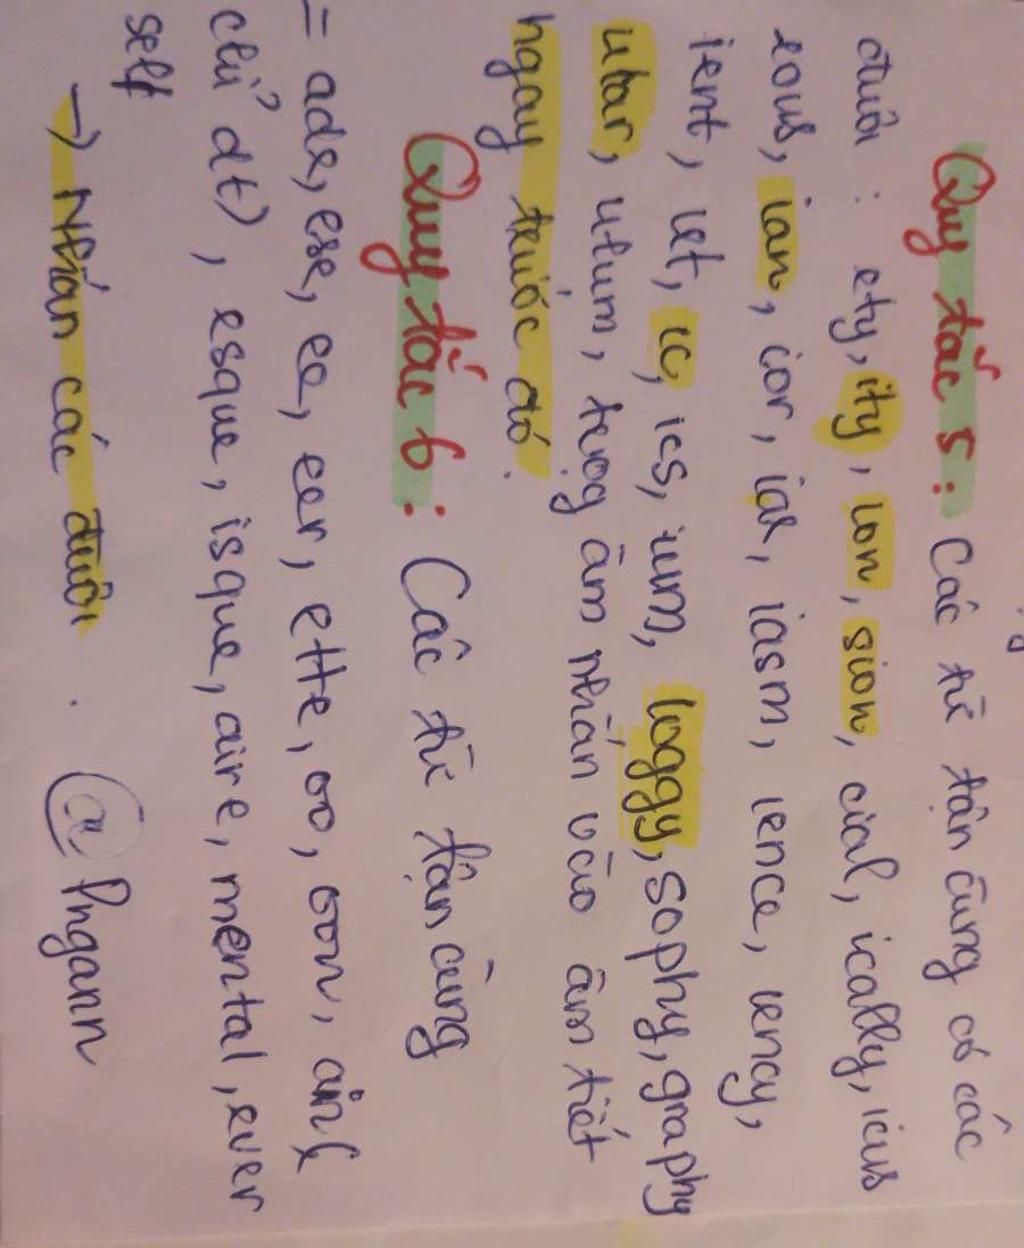 Quy tắc 5: Các từ tận cùng có các
đuôi : ety, ity, ion, sion, cial, ically, icus
eous, ian, ior, ial, iasm, ience, iency,
ient, iet, ic, ics, ium, loggy, sophy, graphy
ular, ulum, trọg âm nhấn vào âm tiết
ngay trước đó.
Quy tắc 6: Các từ tận cùng
= ade, ese, ee, eer, ette, oo, oon, ain(
chỉ dt), esque, isque, aire, mental, ever
self
→ Nhấn các đuôi. @Pngann